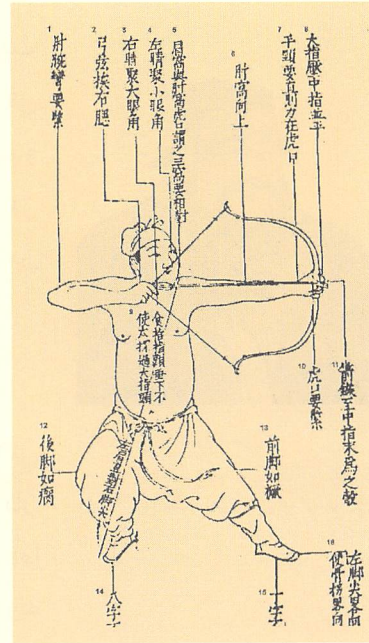 1
肘腕彎要緊
2
弓弦挨右腮
3
右睛聚大眼角
4
左睛聚小眼角
5
肩窩與肘窩虎口謂之三窩要相對
6
肘窩向上
7
手頸要直則力在虎口
8
大指壓中指並平
9
食指指頭垂下不
使太打過大指頭
10
虎口要緊
11
箭鏃至中指末爲之彀
12
後脚如瘸
13
前脚如橛
14
八字
15
字
16
左脚尖畧向
骨拐畧向